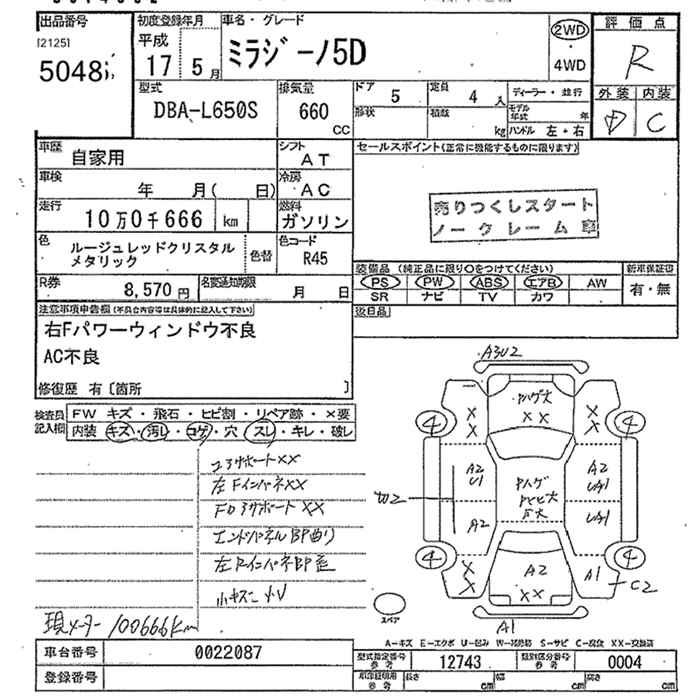 出品番号
[2125]
初度登録年月
平成
17 5 月
車名・グレード
ミラジーノ5D
2WD
・
4WD
評価点
R
外装 内装
D C
型式
DBA-L650S
排気量
660
CC
ドア 5
定員 4 人
形状
積載 kg
ディーラー・並行
モデル年式 年
ハンドル 左・右
車歴 自家用
シフト AT
セールスポイント(正常に機能するものに限ります)
車検 年 月( 日)
冷房 AC
走行 10万0千666 km
燃料 ガソリン
売りつくしスタート
ノークレーム車
色 ルージュレッドクリスタル
メタリック
色替
色コード R45
R券 8,570 円
名変通知期限 月 日
装備品 (純正品に限り○をつけてください)
新車保証書
PS PW ABS エアB AW
SR ナビ TV カワ
有・無
後日品
注意事項申告欄(不具合内容等は具体的に記入して下さい)
右Fパワーウィンドウ不良
AC不良
修復歴 有〔箇所 〕
検査員記入欄
FW キズ・飛石・ヒビ割・リペア跡・×要
内装 キズ・汚レ・コゲ・穴・スレ・キレ・破レ
コアサポートXX
左FインパネXX
エンドパネルBP曲り
現メーター 100666km
A3U2
XX
4
A2
U1
UA1
A2
XX
A1
C2
A1
スペア
A-キズ E-エクボ U-凹み W-補修跡 S-サビ C-腐食 XX-交換済
車台番号 0022087
登録番号
型式指定番号 参考 12743
類別区分番号 参考 0004
長さ cm
幅 cm
高さ cm